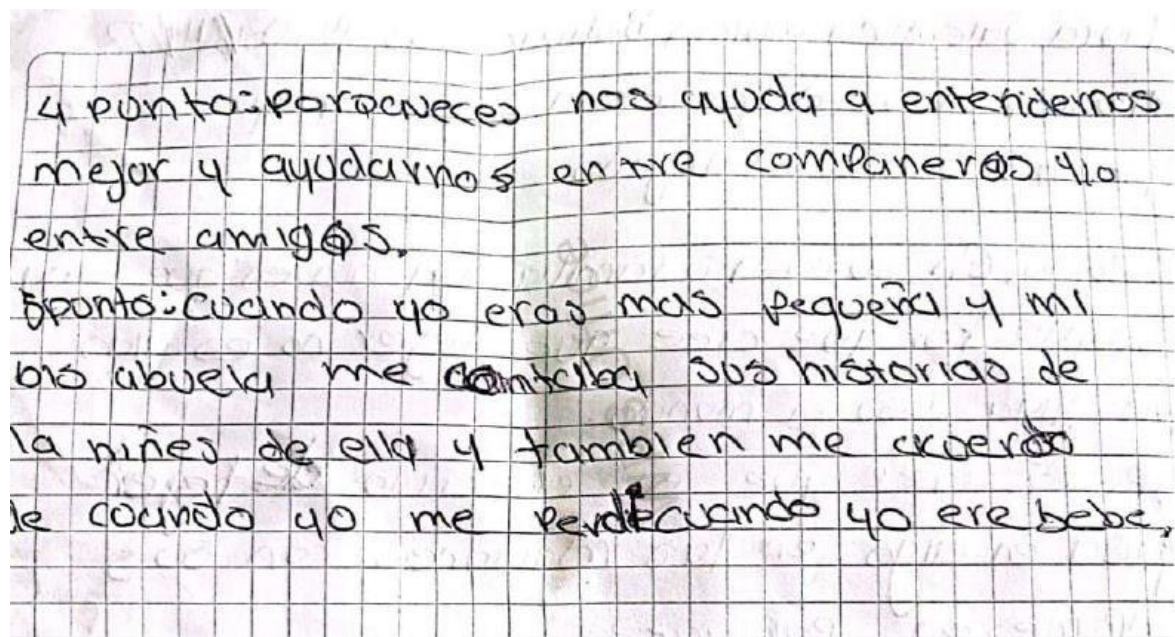 4 punto: paraqueces nos ayuda a entendernos
mejor y ayudarnos entre compañeros y/o
entre amigos.
5 punto: cuando yo eras mas pequeña y mi
bis abuela me contaba sus historias de
la niñes de ella y tambien me acuerdo
de cuando yo me perdi cuando yo ere bebe.